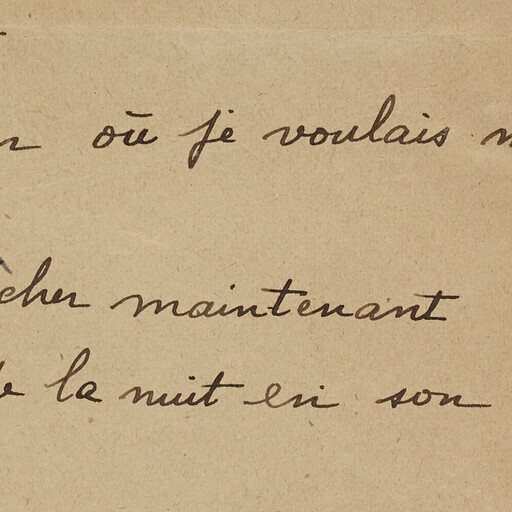 où je voulais
cher maintenant
la nuit en son